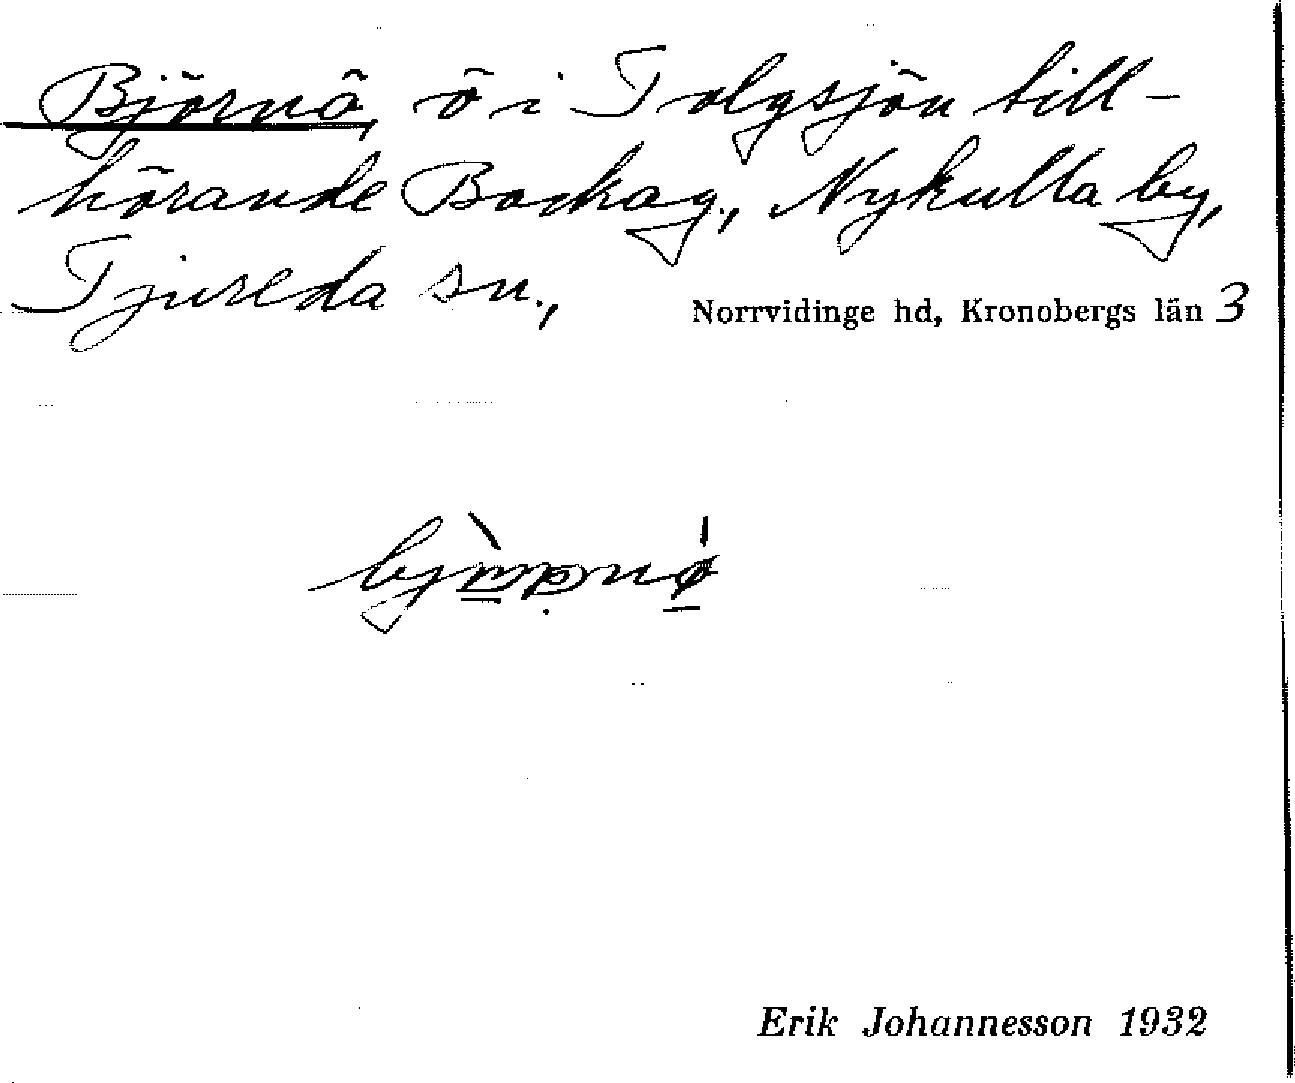 Björnö, ö i Tolgsjön till-
hörande Bockag., Nykulla by,
Tjureda sn., Norrvidinge hd, Kronobergs län 3
Erik Johannesson 1932